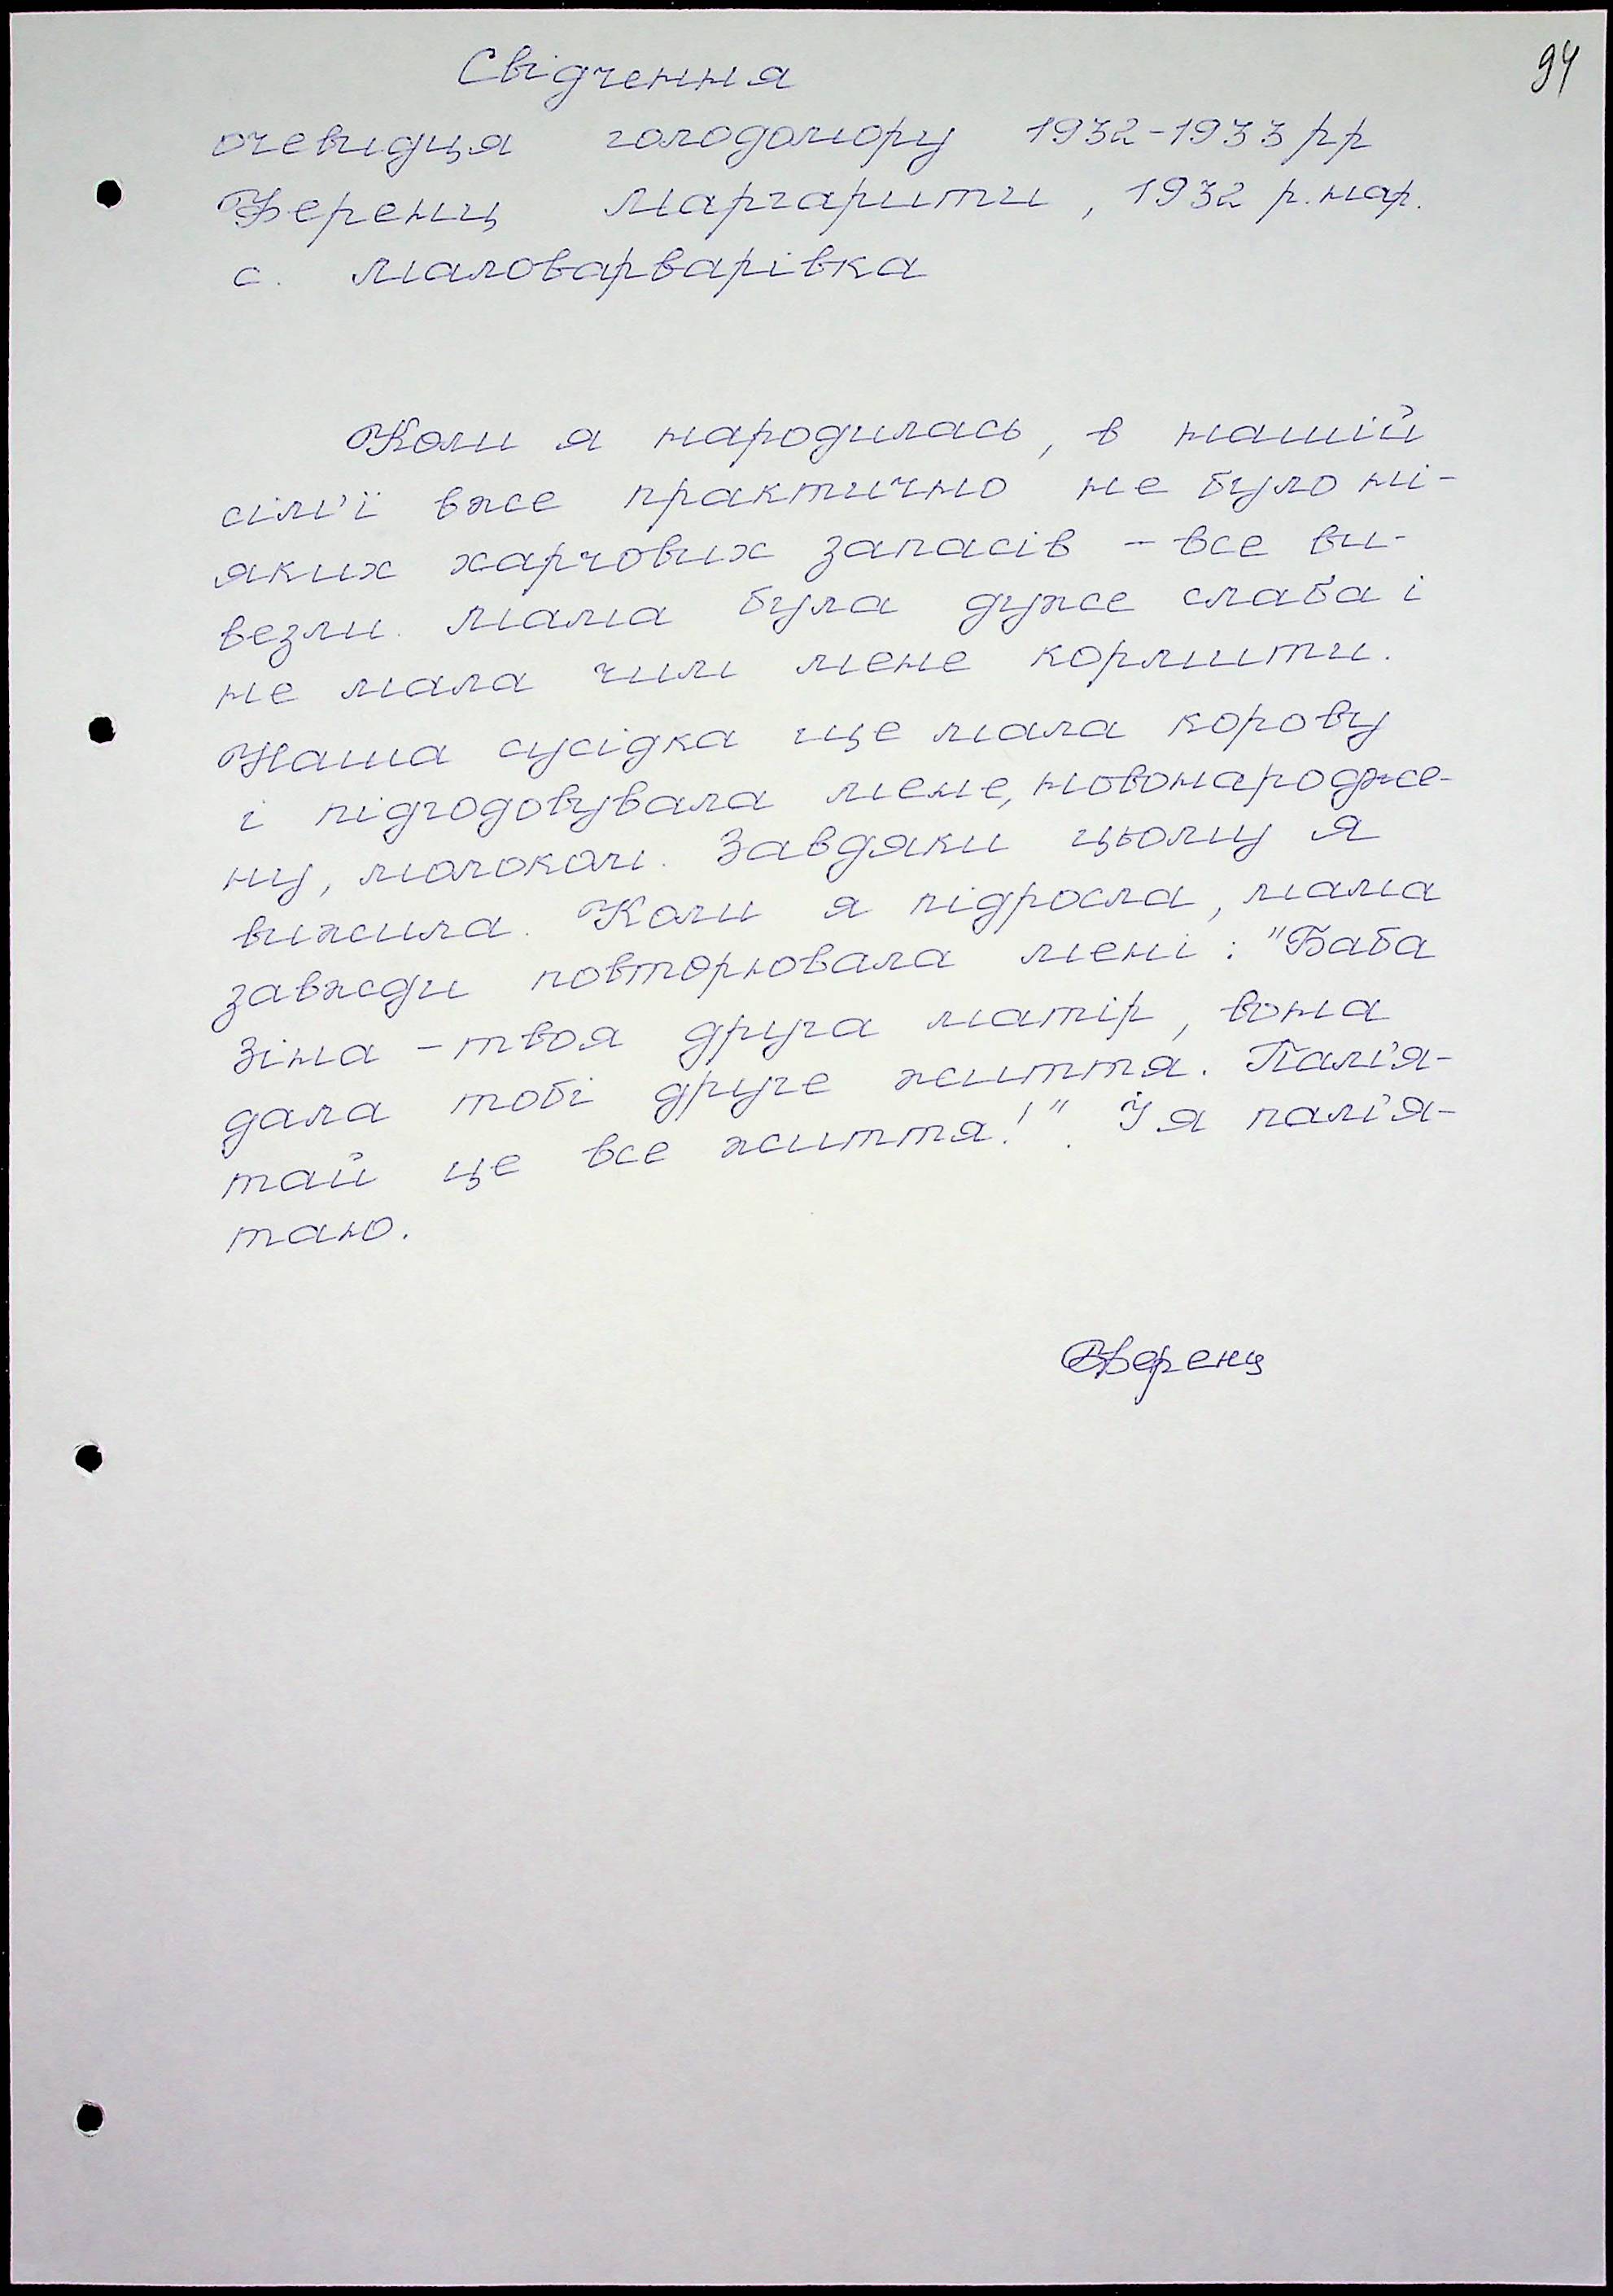 94
Свідчення
очевидця голодомору 1932-1933 рр
Ференц Маргарити, 1932 р. нар.
с. Маловарварівка
Коли я народилась, в нашій
сім'ї вже практично не було ні-
яких харчових запасів - все ви-
везли. Мама була дуже слаба і
не мала чим мене кормити.
Наша сусідка ще мала корову
і підгодовувала мене, новонародже-
ну, молоком. Завдяки цьому я
вижила. Коли я підросла, мама
завжди повторювала мені: "Баба
Зіна - твоя друга матір, вона
дала тобі друге життя. Пам'я-
тай це все життя!". І я пам'я-
таю.
Ференц